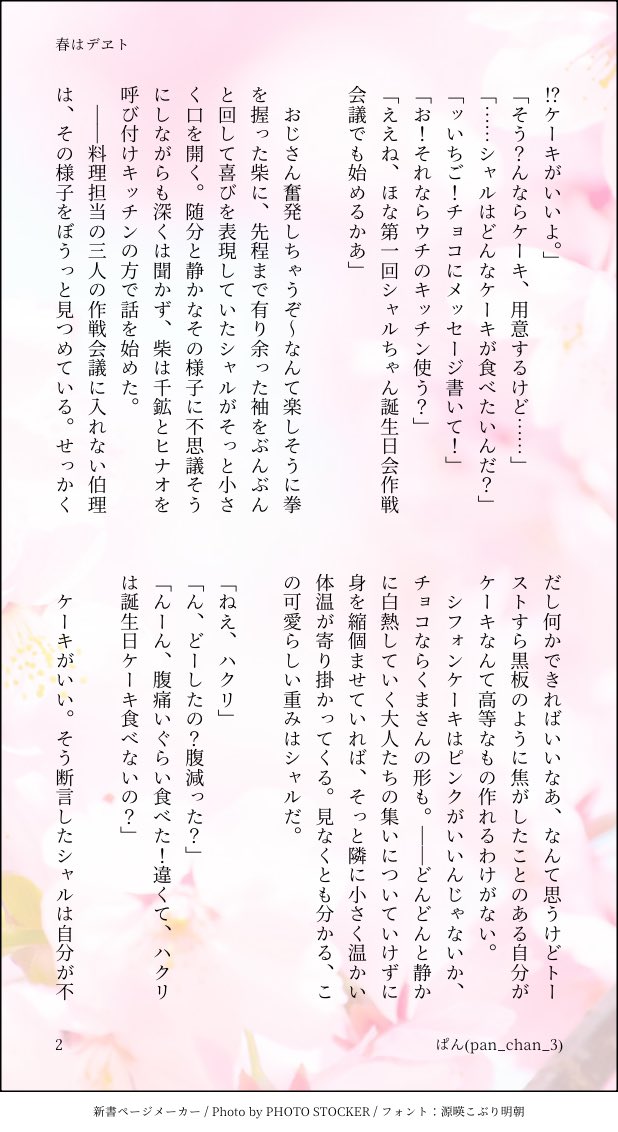 春はデヱト
⁉ケーキがいいよ。」
「そう？んならケーキ、用意するけど……」
「……シャルはどんなケーキが食べたいんだ？」
「ッいちご！チョコにメッセージ書いて！」
「お！それならウチのキッチン使う？」
「ええね、ほな第一回シャルちゃん誕生日会作戦
会議でも始めるかあ」
おじさん奮発しちゃうぞ～なんて楽しそうに拳
を握った柴に、先程まで有り余った袖をぶんぶん
と回して喜びを表現していたシャルがそっと小さ
く口を開く。随分と静かなその様子に不思議そう
にしながらも深くは聞かず、柴は千鉱とヒナオを
呼び付けキッチンの方で話を始めた。
――料理担当の三人の作戦会議に入れない伯理
は、その様子をぼうっと見つめている。せっかく
だし何かできればいいなあ、なんて思うけどトー
ストすら黒板のように焦がしたことのある自分が
ケーキなんて高等なもの作れるわけがない。
シフォンケーキはピンクがいいんじゃないか、
チョコならくまさんの形も。――どんどんと静か
に白熱していく大人たちの集いについていけずに
身を縮個ませていれば、そっと隣に小さく温かい
体温が寄り掛かってくる。見なくとも分かる、こ
の可愛らしい重みはシャルだ。
「ねえ、ハクリ」
「ん、どーしたの？腹減った？」
「んーん、腹痛いぐらい食べた！違くて、ハクリ
は誕生日ケーキ食べないの？」
ケーキがいい。そう断言したシャルは自分が不
2
ぱん(pan_chan_3)
新書ページメーカー / Photo by PHOTO STOCKER / フォント：源暎こぶり明朝